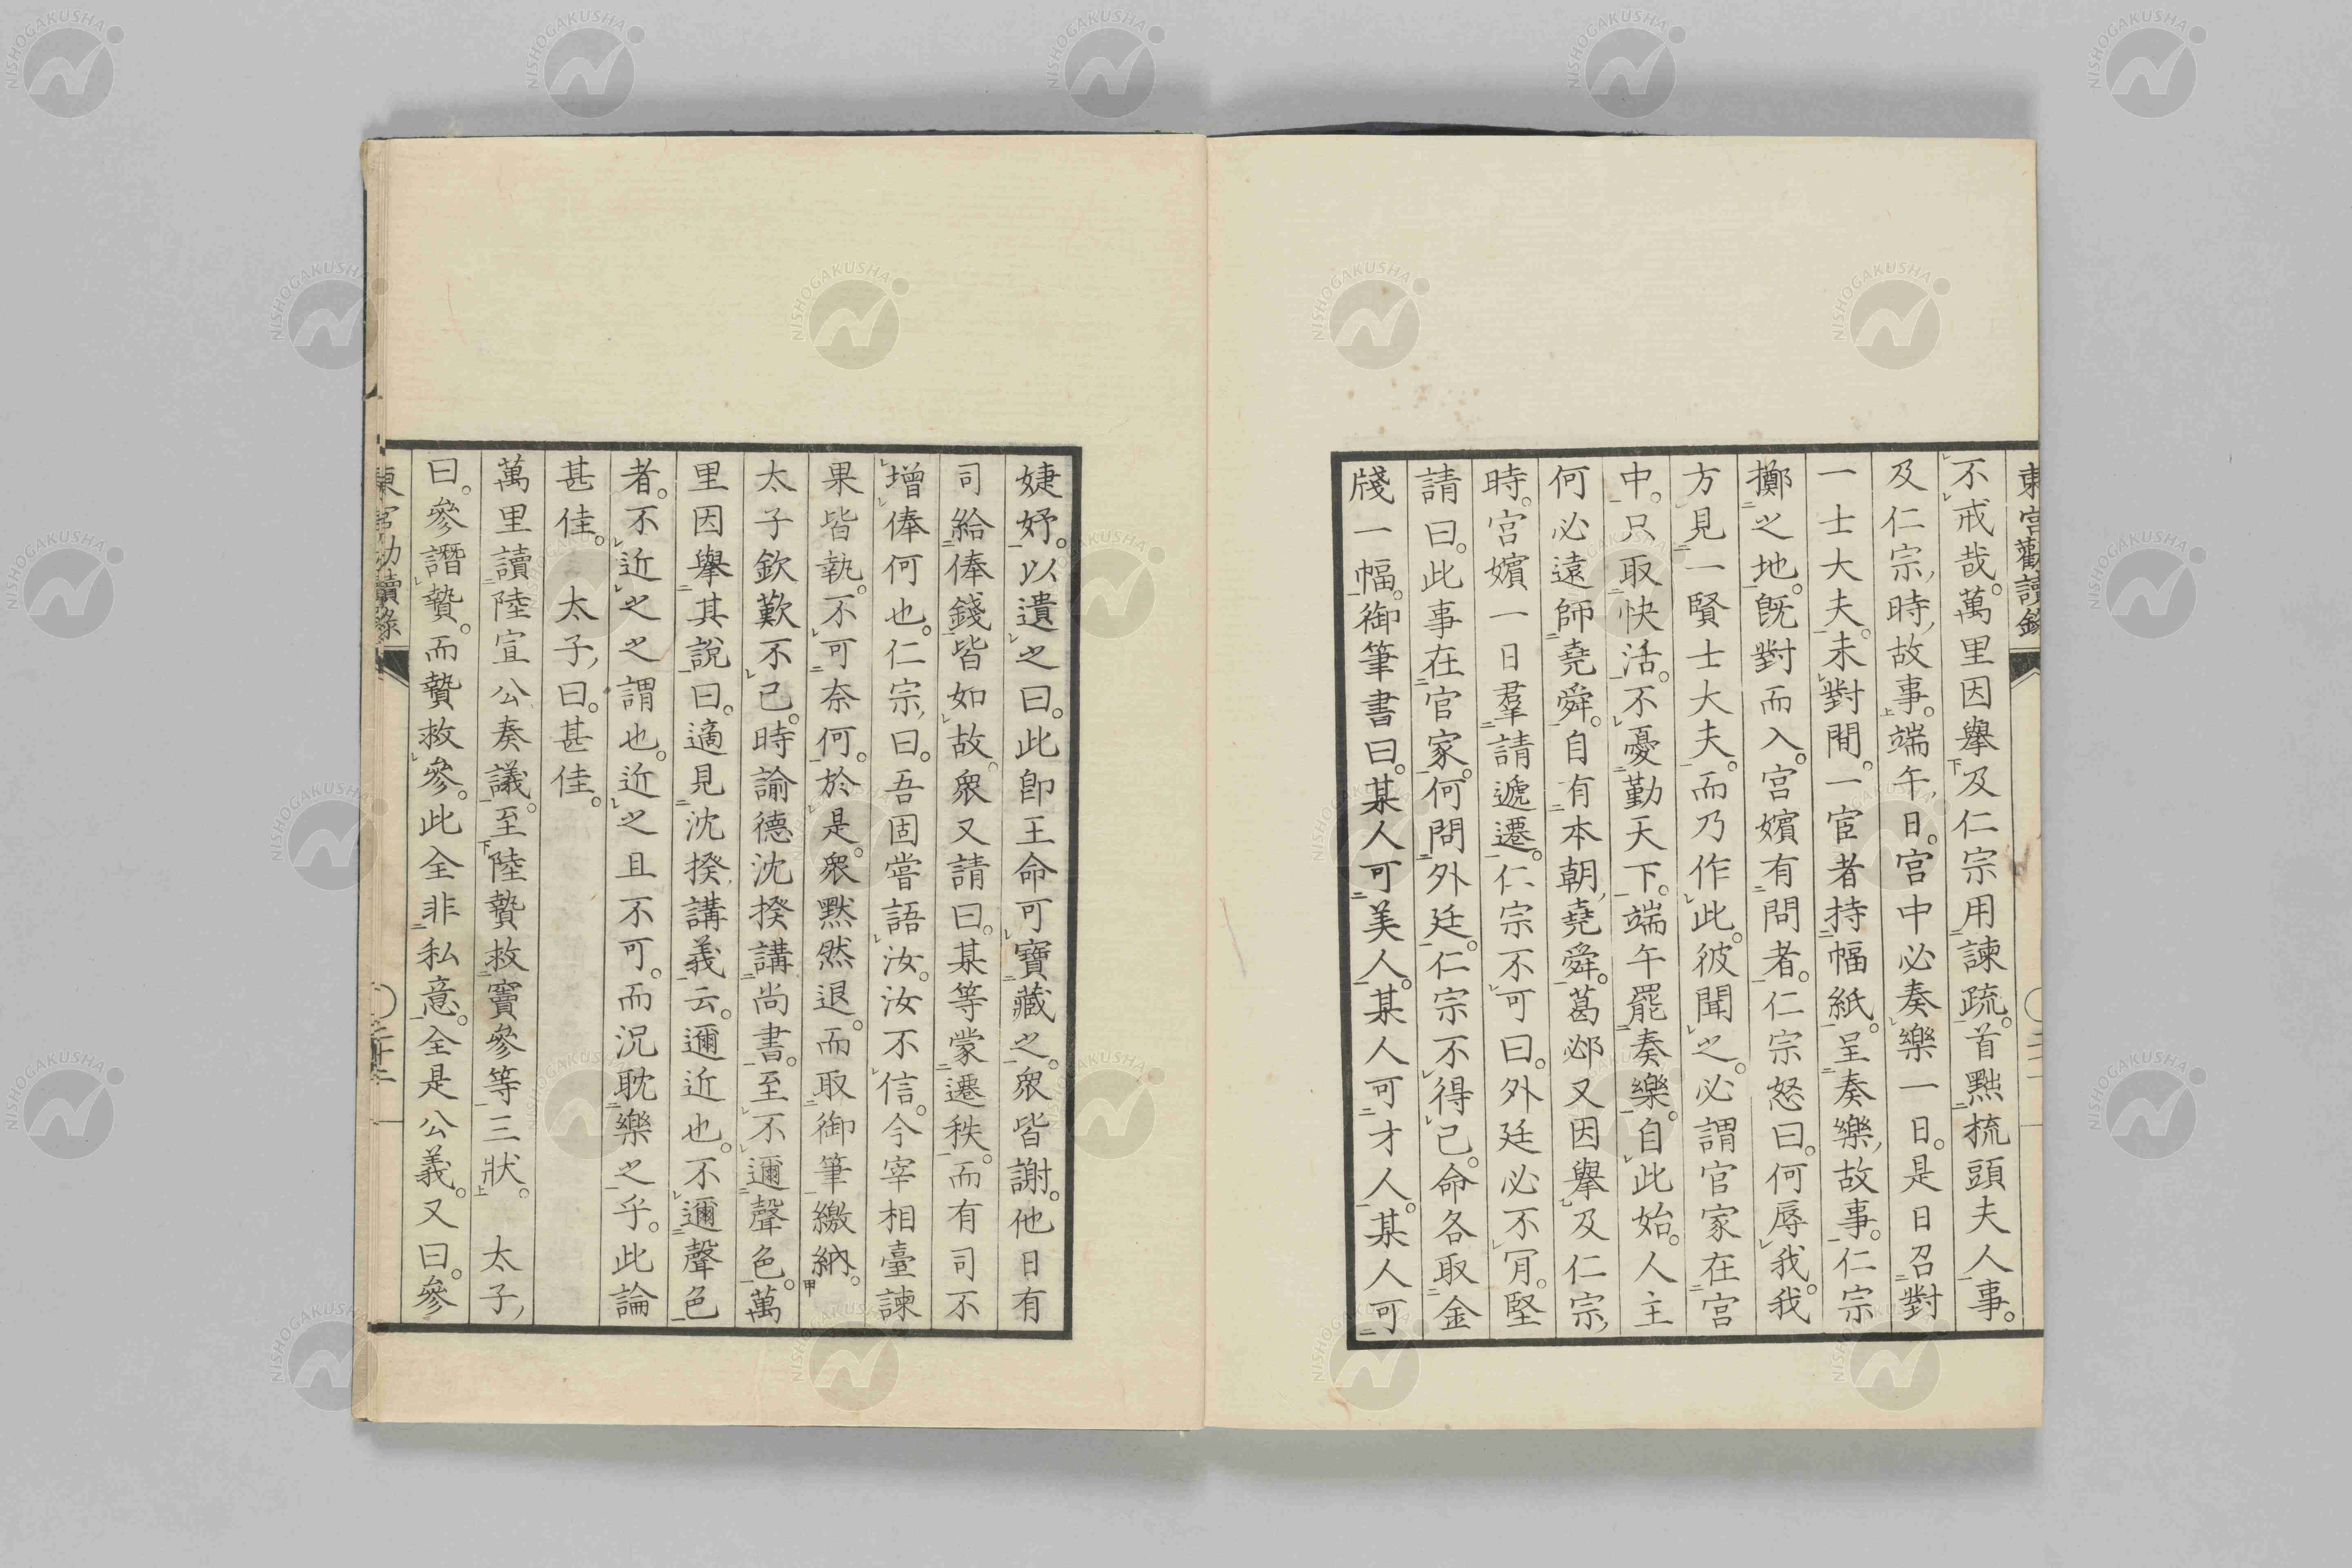 東宮勸讀錄
不戒哉。萬里因擧及仁宗用諫疏。首㸃梳頭夫人事。
及仁宗時故事。端午日。宮中必奏樂一日。是日召對
一士大夫。未對間。一宦者持幅紙。呈奏樂故事。仁宗
擲之地。旣對而入。宮嬪有問者。仁宗怒曰。何辱我。我
方見一賢士大夫。而乃作此。彼聞之。必謂官家在宮
中。只取快活。不憂勤天下。端午罷奏樂。自此始。人主
何必遠師堯舜。自有本朝堯舜。葛邲又因擧及仁宗
時。宮嬪一日羣請遞遷。仁宗不可曰。外廷必不肎。堅
請曰。此事在官家。何問外廷。仁宗不得已。命各取金
牋一幅。御筆書曰。某人可美人。某人可才人。某人可
婕妤。以遺之曰。此卽王命可寶藏之。衆皆謝。他日有
司給俸錢皆如故。衆又請曰。某等蒙遷秩。而有司不
增俸何也。仁宗曰。吾固嘗語汝。汝不信。今宰相臺諫
果皆執。不可奈何。於是衆默然退。而取御筆繳納。
太子欽歎不已。時諭德沈揆講尚書。至不邇聲色。萬
里因擧其說曰。適見沈揆講義云。邇近也。不邇聲色
者。不近之之謂也。近之且不可。而況耽樂之乎。此論
甚佳。太子曰。甚佳。
萬里讀陸宣公奏議。至陸贄救竇參等三狀。 太子
曰。參譖贄。而贄救參。此全非私意。全是公義。又曰。參
NISHOGAKUSHA